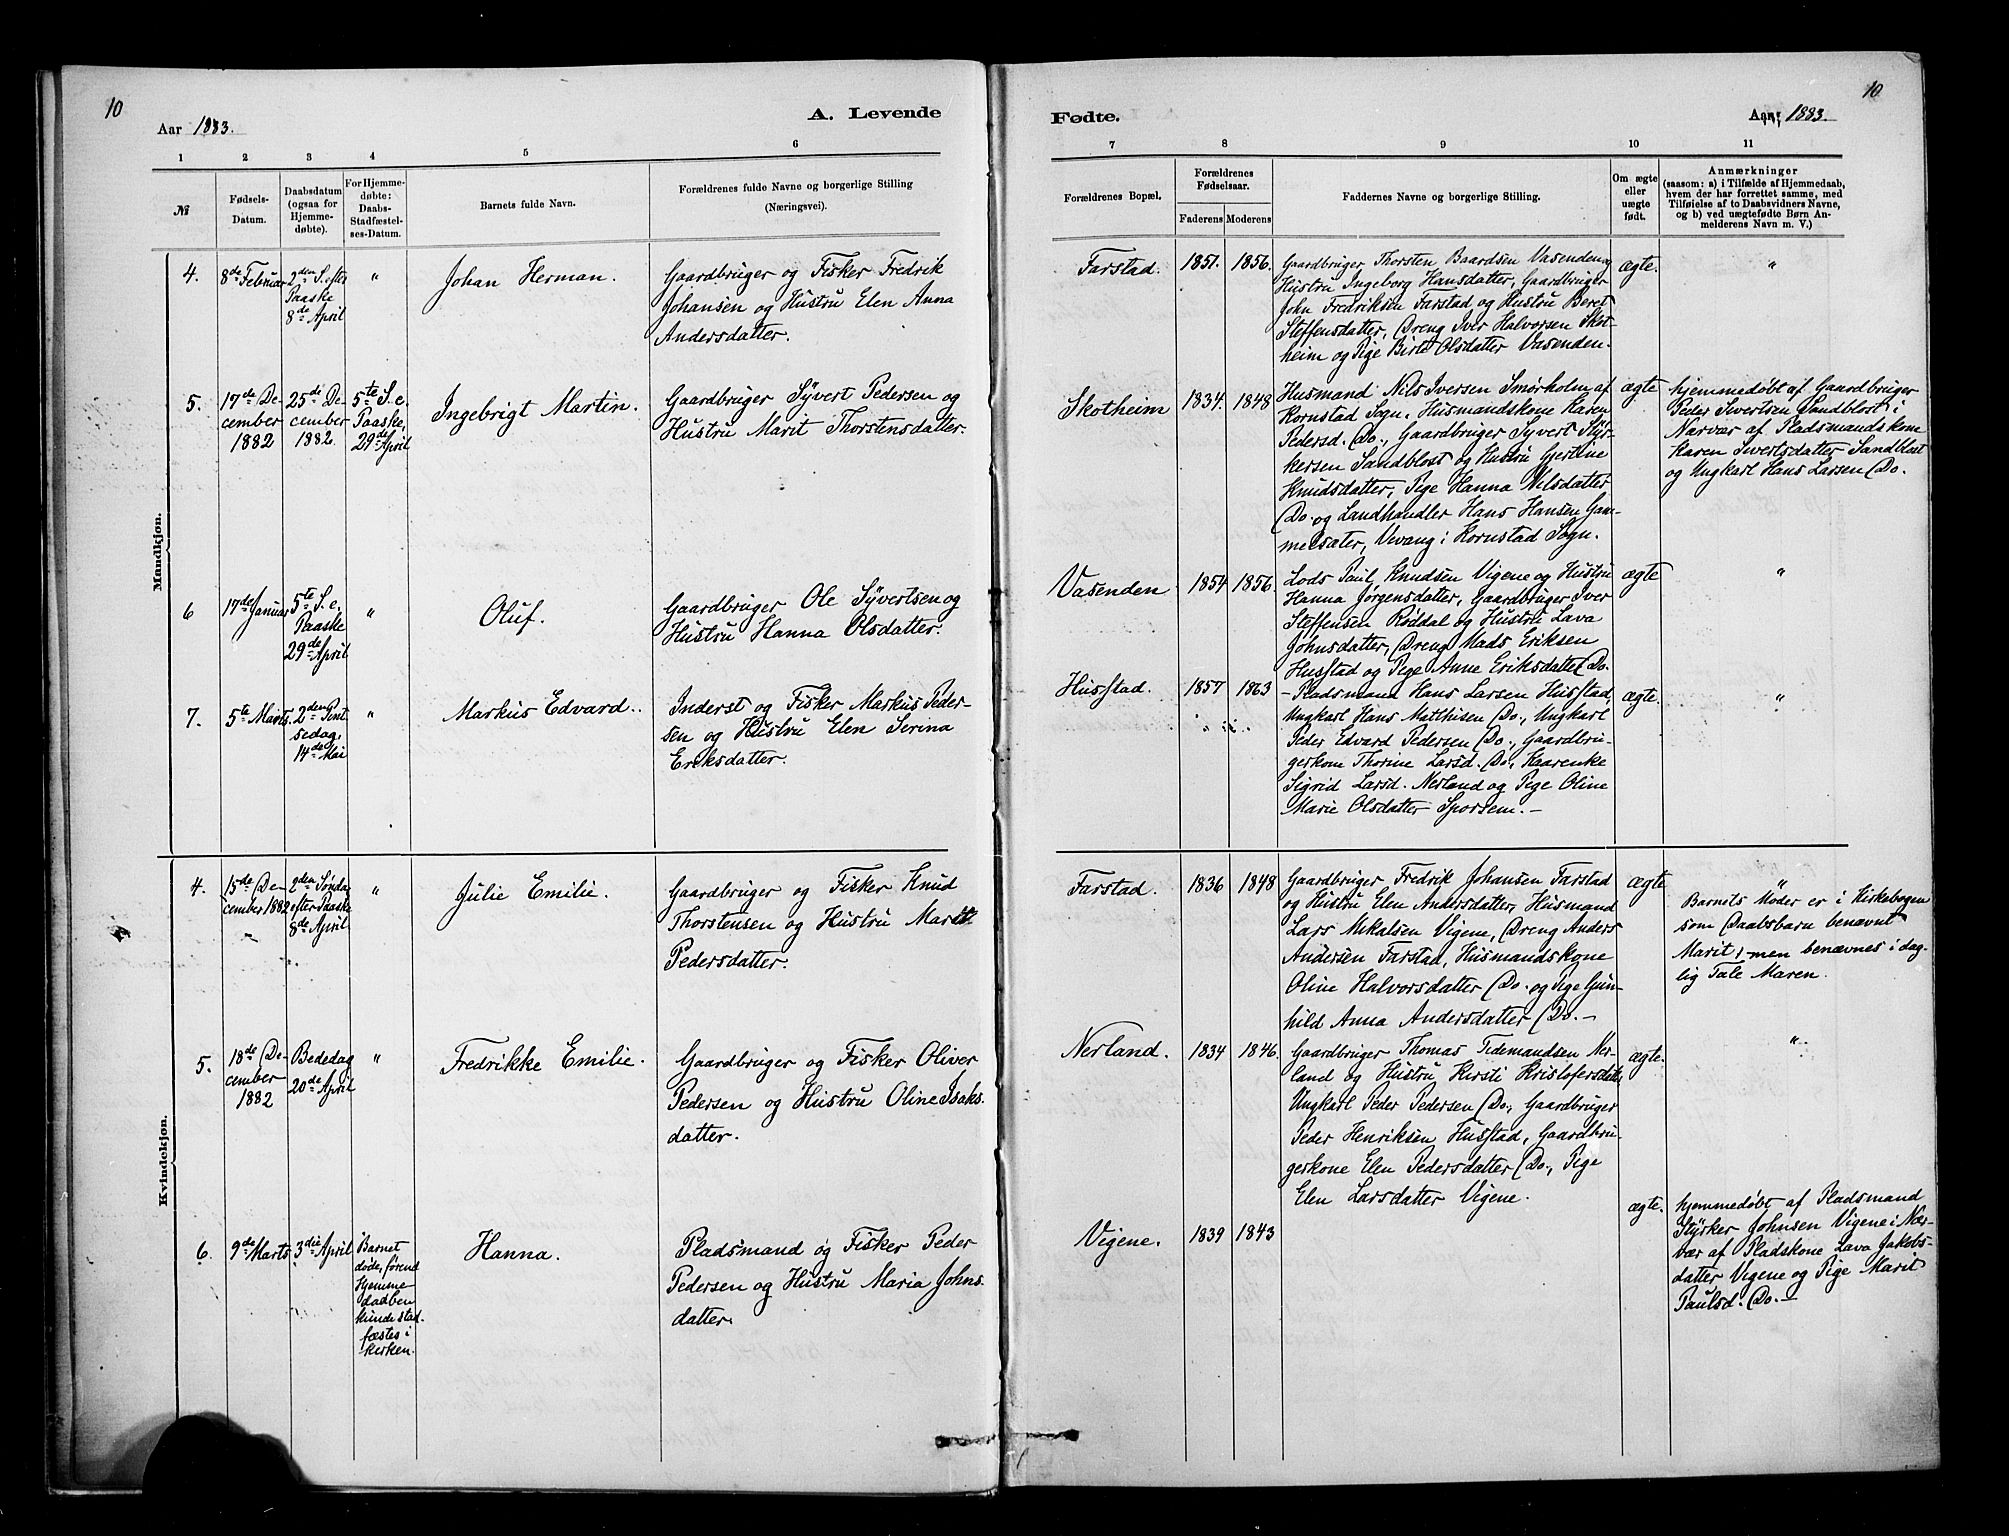 10
Aar 1883.
A. Levende
1 2 3 4 5 6
№
Fødsels-
Datum.
Daabsdatum
(ogsaa for
Hjemme-
døbte).
For Hjemme-
døbte:
Daabs-
Stadfæstel-
ses-Datum.
Barnets fulde Navn.
Forældrenes fulde Navne og borgerlige Stilling
(Næringsvei).
Mandkjøn.
4.
8de Februar
2den S. efter
Paaske
8de April
"
Johan Herman.
Gaardbruger og Fisker Fredrik
Johansen og Hustru Elen Anna
Andersdatter.
5.
17de De-
cember
1882
25de De-
cember
1882.
5te S. e.
Paaske,
29de April
Ingebrigt Martin.
Gaardbruger Syvert Pedersen og
Hustru Marit Thorstensdatter.
6
17de Januar
5te S. e.
Paaske
29de April
"
Oluf.
Gaardbruger Ole Syvertsen og
Hustru Hanna Olsdatter.
7.
5te Marts.
2den Pint-
sedag,
14de Mai
"
Markus Edvard.
Inderst og Fisker Markus Peder-
sen og Hustru Elen Serina
Eriksdatter.
Kvindekjøn.
4.
15de De-
cember 1882
2den Søndag
efter Paaske
8de April
"
Julie Emilie.
Gaardbruger og Fisker Knud
Thorstensen og Hustru Marit
Pedersdatter.
5.
18de De-
cember
1882
Bededag
20de April
"
Fredrikke Emilie.
Gaardbruger og Fisker Oliver
Pedersen og Hustru Oline Isaks-
datter.
6.
9de Marts
3die April
Barnet
døde, førend
Hjemme-
daaben
kunde stad-
fæstes i
Kirken.
Hanna.
Pladsmand og Fisker Peder
Pedersen og Hustru Maria Johns-
datter.
10
Fødte.
Aar 1883.
7 8 9 10 11
Forældrenes Bopæl.
Forældrenes
Fødselsaar.
Faderens Moderens
Faddernes Navne og borgerlige Stilling.
Om ægte
eller
uægte
født.
Anmærkninger
(saasom: a) i Tilfælde af Hjemmedaab,
hvem der har forrettet samme, med
Tilføielse af to Daabsvidners Navne,
og b) ved uægtefødte Børn An-
melderens Navn m. V.)
Farstad.
1851. 1856.
Gaardbruger Thorsten Baardsen Vasenden og
Hustru Ingeborg Hansdatter, Gaardbruger
John Fredriksen Farstad og Hustru Beret
Steffensdatter, Dreng Iver Halvorsen Skot-
heim og Pige Birte Olsdatter Vasenden.
ægte.
"
Skotheim
1834. 1848
Husmand Nils Iversen Smørholm af
Kornstad Sogn, Husmandskone Karen
Pedersd. Do., Gaardbruger Syvert Styr-
kersen Sandblost og Hustru Gertine
Knudsdatter, Pige Hanna Nilsdatter
Do. og Landhandler Hans Hansen Gam-
melsæter, Vevang i Kornstad Sogn.
ægte
hjemmedøbt af Gaardbruger
Peder Sivertsen Sandblost i
Nærvær af Pladsmandskone
Karen Sivertsdatter Sandblost
og Ungkarl Hans Larsen Do.
Vasenden
1854 1856
Lods Paul Knudsen Vigene og Hustru
Hanna Jørgensdatter, Gaardbruger Iver
Steffensen Røddal og Hustru Lava
Johnsdatter, Dreng Mads Eriksen
Husstad og Pige Anne Eriksdatter Do.
ægte
"
Husstad.
1857 1863
– Pladsmand Hans Larsen Husstad,
Ungkarl Hans Matthisen Do., Ungkarl
Peder Edvard Pedersen Do., Gaardbru-
gerkone Thorine Larsd. Do., Kaarenke
Sigrid Larsd. Nerland og Pige Oline
Marie Olsdatter Sporsem. –
ægte.
"
Farstad.
1836 1848
Gaardbruger Fredrik Johansen Farstad
og Hustru Elen Andersdatter, Husmand
Lars Mikalsen Vigene, Dreng Anders
Andersen Farstad, Husmandskone
Oline Halvorsdatter Do. og Pige Gun-
hild Anna Andersdatter Do. –
ægte
"
Barnets Moder er i Kirkebogen
som Daabsbarn benævnt
Marit, men benævnes i dag-
lig Tale Maren.
Nerland.
1834 1846.
Gaardbruger Thomas Tidemandsen Ner-
land og Hustru Kirsti Kristofersdatter,
Ungkarl Peder Pedersen Do., Gaardbruger
Peder Henriksen Husstad, Gaardbru-
gerkone Elen Pedersdatter Do., Pige
Elen Larsdatter Vigene.
ægte.
"
Vigene.
1839 1843
ægte.
hjemmedøbt af Pladsmand
Styrker Johnsen Vigene i Nær-
vær af Pladskone Lava Jakobs-
datter Vigene og Pige Marit
Paulsd. Do. –